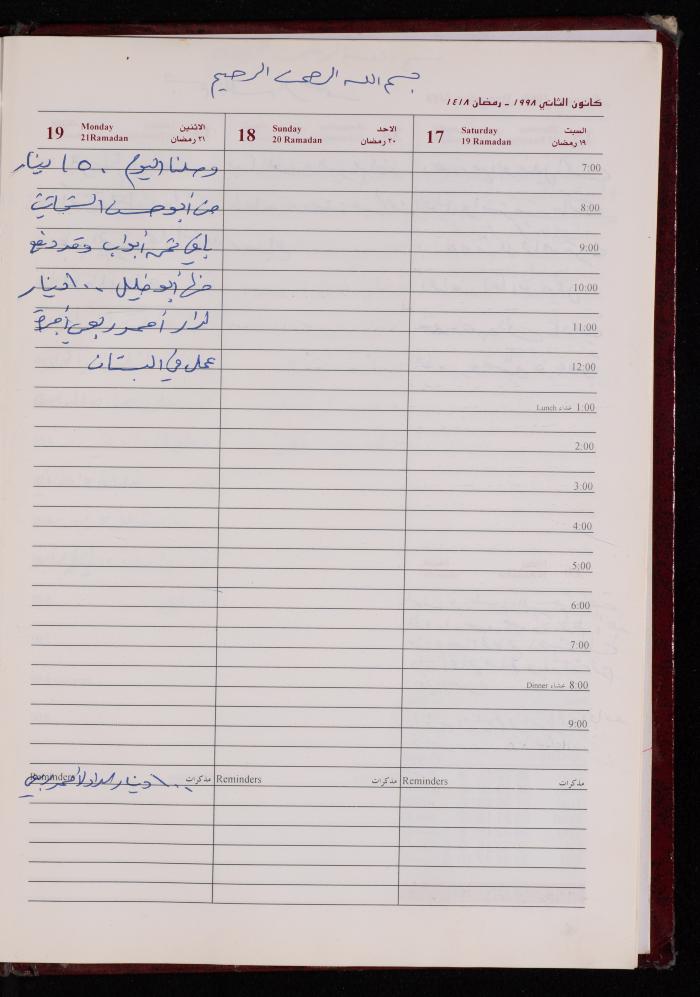 بسم الله الرحمن الرحيم
كانون الثاني ١٩٩٨ - رمضان ١٤١٨
السبت
١٩ رمضان
Saturday
19 Ramadan
17
الاحد
٢٠ رمضان
Sunday
20 Ramadan
18
الاثنين
٢١ رمضان
Monday
21Ramadan
19
7:00
8:00
9:00
10:00
11:00
12:00
Lunch غداء 1:00
2:00
3:00
4:00
5:00
6:00
7:00
Dinner عشاء 8:00
9:00
وصلنا اليوم ١٥٠ دينار
من أبو حسن
باقي ثمن أبواب وقد دفع
منها أبو خليل ١٠٠ دينار
أحمد ربعي أجرة
عمل في البستان
مذكرات Reminders
مذكرات Reminders
مذكرات Reminders
١٠٠ دينار لأحمد ربعي